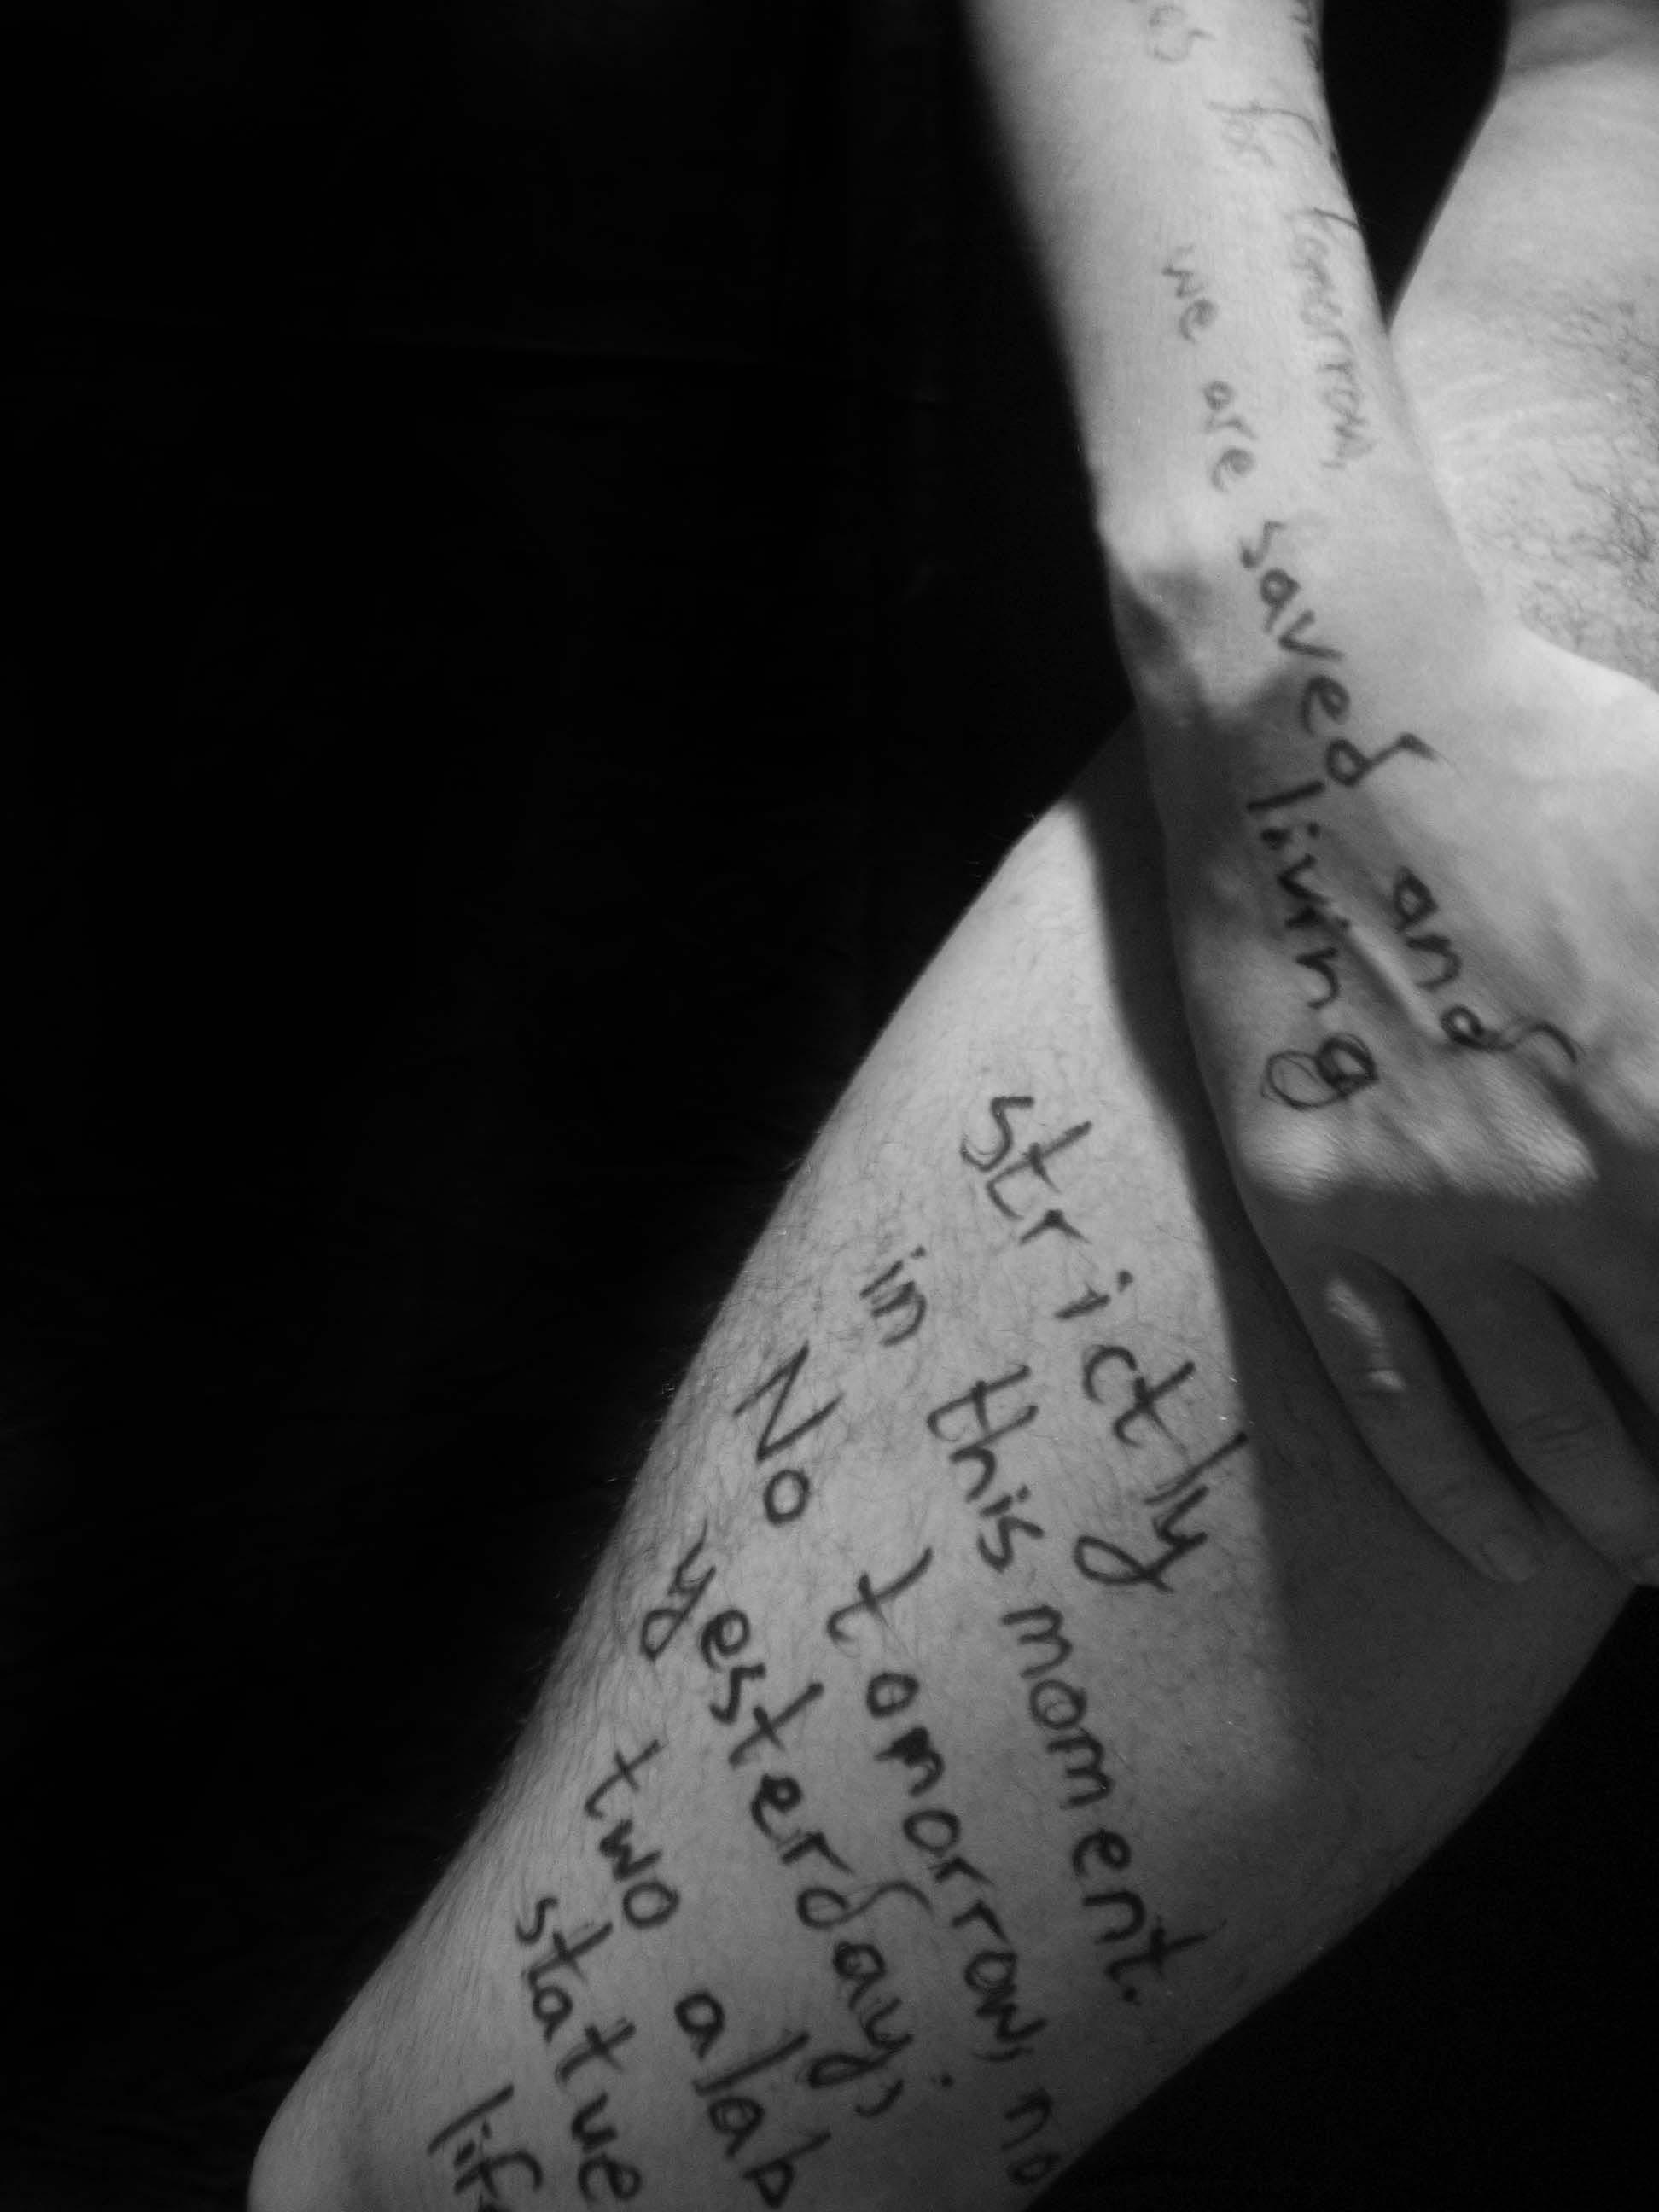 for
tomorrow,
we are saved and
living
strictly
in this moment.
No tomorrow, no
yesterday;
two alab
statue
life